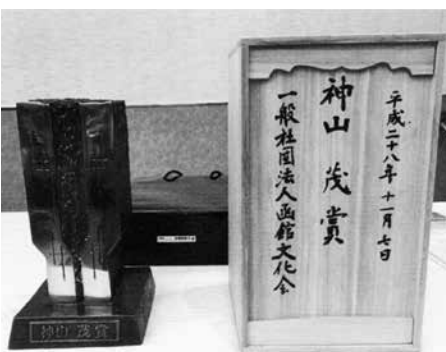 平成二十八年 十一月七日
神山 茂賞
一般社団法人函館文化会
神山 茂賞